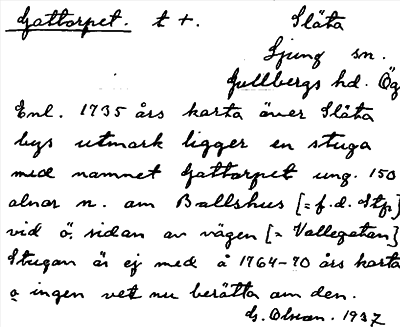 Gattorpet. t +. Slåta
Ljung sn.
Gullbergs hd. Ög
Enl. 1735 års karta över Slåta
bys utmark ligger en stuga
med namnet Gattorpet ung. 150
alnar n. om Ballshus [= f.d. Stp]
vid ö. sidan av vägen [= Vallegatan]
Stugan är ej med å 1764-70 års karta
o ingen vet nu berätta om den.
G. Olson. 1937